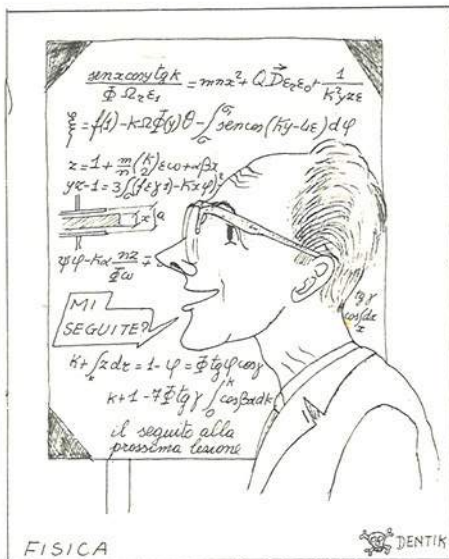 senx cosy tgk / Φ Ω₂ ε₁ = mnx² + Q D⃗ ε₂ε₀ + 1 / k²yzε
ξ = f(1) - KΩΦ(y)θ - ∫ sencos (ky-4ε) dφ
z = 1 + m/n (k/2) εω + αβx
yz-1 = 3∫(fεγs) - Kxφ)²
x a
ψφ - Kα nz / Φω
MI
SEGUITE?
tg γ
cos∫dx
K + ∫zdx = 1 - φ = Φ tgφ cosγ
k + 1 - 7Φ tgγ ∫ cosβαdk
il seguito alla
prossima lezione
FISICA
DENTIK